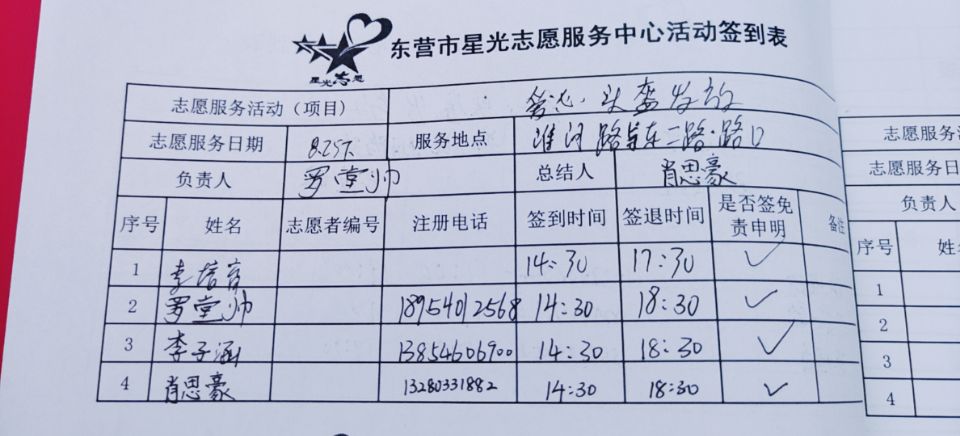 星光志愿
东营市星光志愿服务中心活动签到表
志愿服务活动（项目） 爱心头盔发放
志愿服务日期 8.25下 服务地点 淮河路与东二路路口
负责人 罗堂帅 总结人 肖思豪
序号 姓名 志愿者编号 注册电话 签到时间 签退时间 是否签免责申明 备注
1 李信 14:30 17:30 ✓
2 罗堂帅 18954012568 14:30 18:30 ✓
3 李子涵 13854606900 14:30 18:30 ✓
4 肖思豪 13280331882 14:30 18:30 ✓
志愿服务
志愿服务日
负责人
序号 姓
1
2
3
4